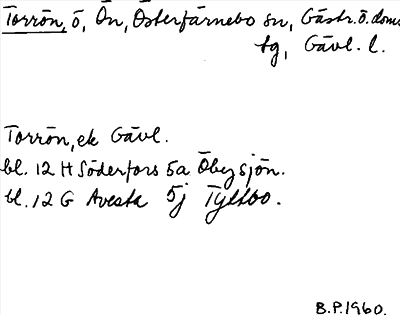 Torrön, ö, Ön, Österfärnebo sn, Gästr.ö.doms
tg, Gävl. l.
Torrön, ek Gävl.
bl. 12 H Söderfors 5a Öbysjön.
bl. 12 G Avesta 5j Tyttbo.
B.P.1960.